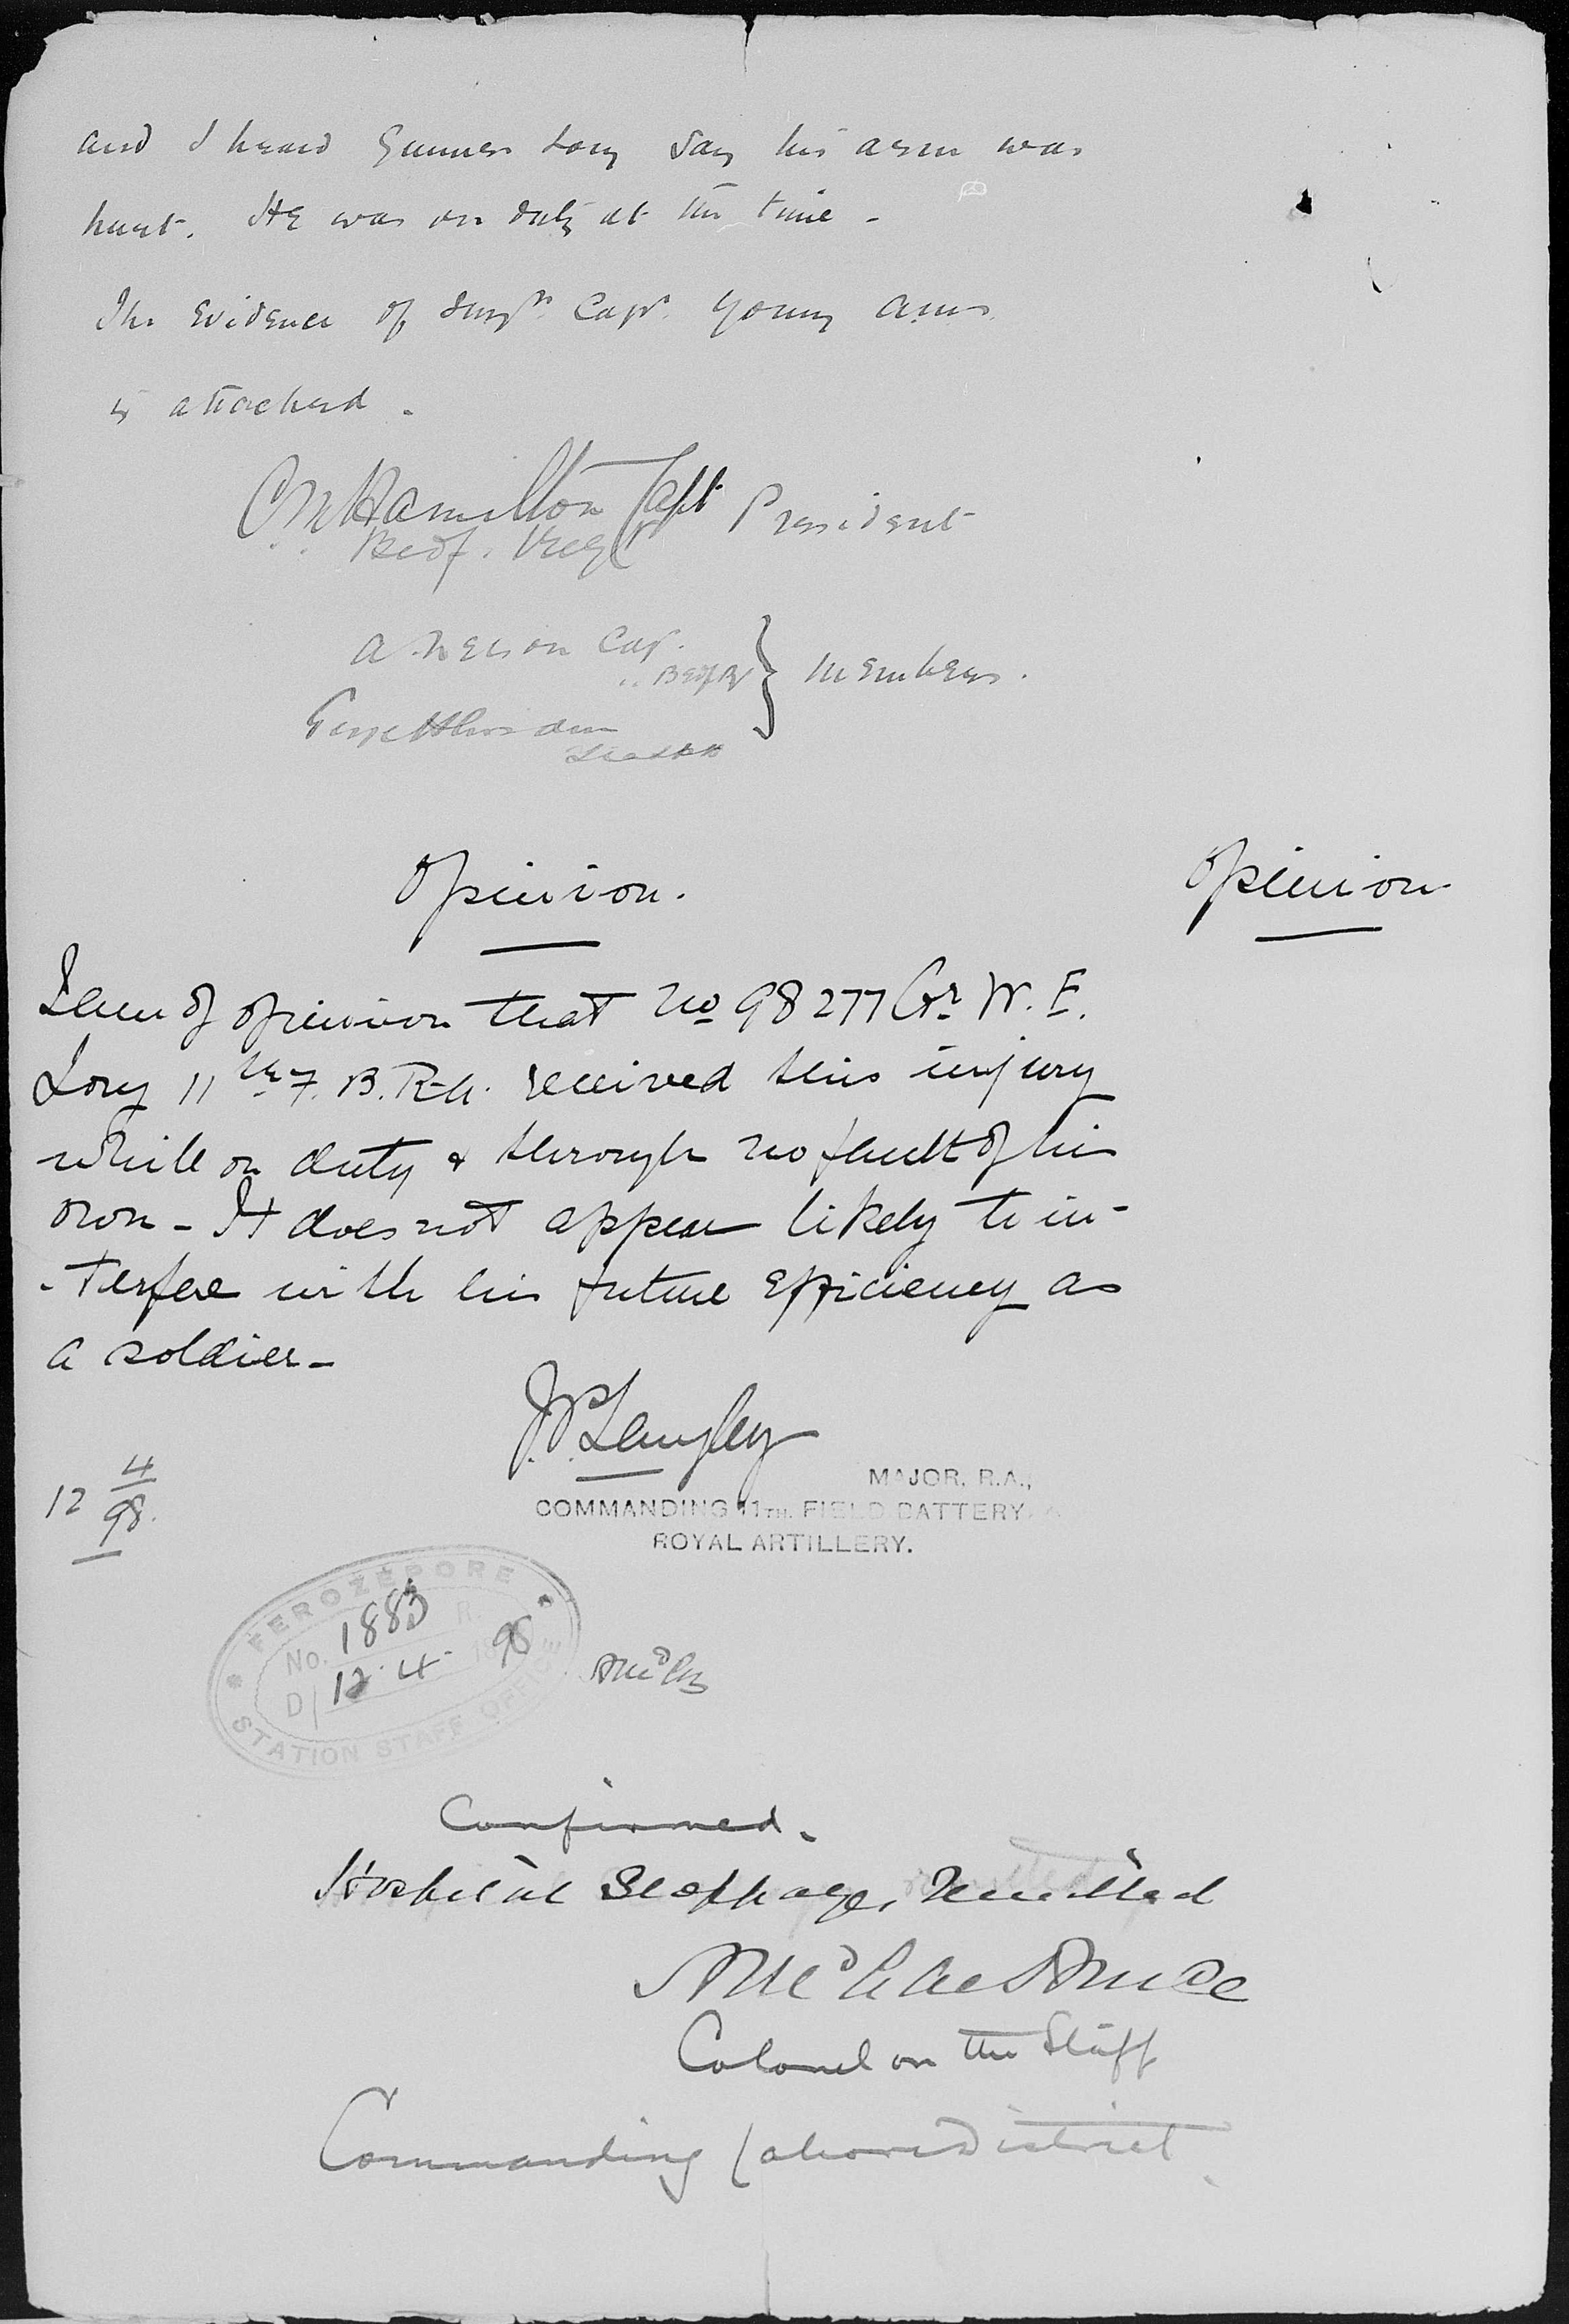 and I heard Gunner Long say his arm was
hurt. He was on duty at the time -
The Evidence of Surgn. Capt. Young AMS
is attached.
C M Hamilton Capt President
Bedf. Regt
A Nelson Cap.
Bedf R } Members.
Lieut RA
Opinion.
Opinion
I am of opinion that No 98277 Gr. W. E.
Long 11th F. B. R.A. received this injury
while on duty & through no fault of his
own - It does not appear likely to in-
-terfere with his future efficiency as
a soldier -
J. P. Langley
MAJOR, R.A.,
COMMANDING 11TH. FIELD BATTERY
ROYAL ARTILLERY.
12 4/98.
FEROZEPORE
No. 1883 R.
D/ 12.4. 98
STATION STAFF OFFICE
Confirmed.
Hospital Stoppages Remitted
Colonel on the Staff
Commanding Lahore District